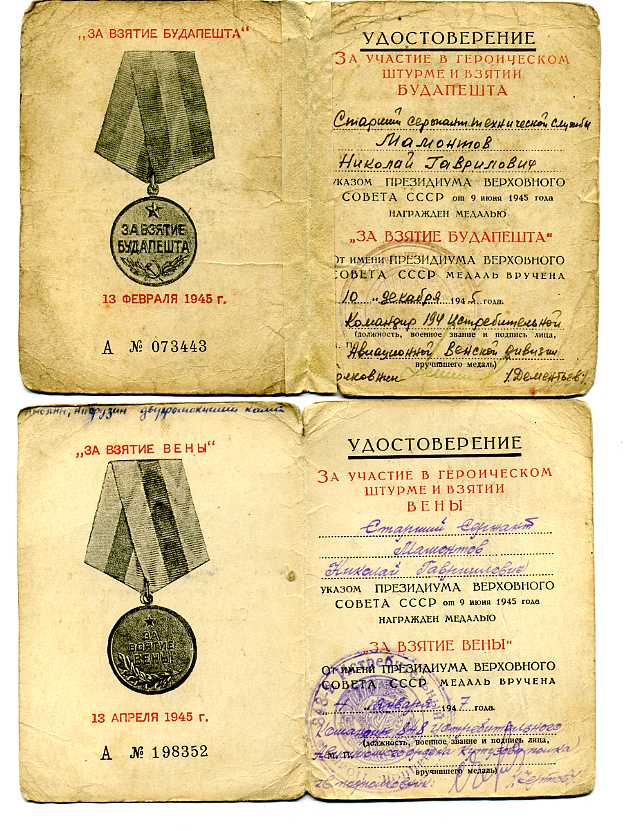 „ЗА ВЗЯТИЕ БУДАПЕШТА“
ЗА ВЗЯТИЕ
БУДАПЕШТА
13 ФЕВРАЛЯ 1945 г.
А № 073443
УДОСТОВЕРЕНИЕ
ЗА УЧАСТИЕ В ГЕРОИЧЕСКОМ
ШТУРМЕ И ВЗЯТИИ
БУДАПЕШТА
Старший сержант технической службы
Мамонтов
Николай Гаврилович
УКАЗОМ ПРЕЗИДИУМА ВЕРХОВНОГО
СОВЕТА СССР от 9 июня 1945 года
НАГРАЖДЕН МЕДАЛЬЮ
„ЗА ВЗЯТИЕ БУДАПЕШТА“
ОТ ИМЕНИ ПРЕЗИДИУМА ВЕРХОВНОГО
СОВЕТА СССР МЕДАЛЬ ВРУЧЕНА
10 „ декабря 1945 года.
Командир 194 Истребительной
(должность, военное звание и подпись лица,
Авиационной Венской дивизии
вручившего медаль)
/Дементьев/
„ЗА ВЗЯТИЕ ВЕНЫ“
ЗА
ВЗЯТИЕ
ВЕНЫ
13 АПРЕЛЯ 1945 г.
А № 198352
УДОСТОВЕРЕНИЕ
ЗА УЧАСТИЕ В ГЕРОИЧЕСКОМ
ШТУРМЕ И ВЗЯТИИ
ВЕНЫ
Старший Сержант
Мамонтов
Николай Гаврилович
УКАЗОМ ПРЕЗИДИУМА ВЕРХОВНОГО
СОВЕТА СССР от 9 июня 1945 года
НАГРАЖДЕН МЕДАЛЬЮ
„ЗА ВЗЯТИЕ ВЕНЫ“
ОТ ИМЕНИ ПРЕЗИДИУМА ВЕРХОВНОГО
СОВЕТА СССР МЕДАЛЬ ВРУЧЕНА
января 1947 года.
Командир 848 истребительного
(должность, военное звание и подпись лица,
М. П.
вручившего медаль)